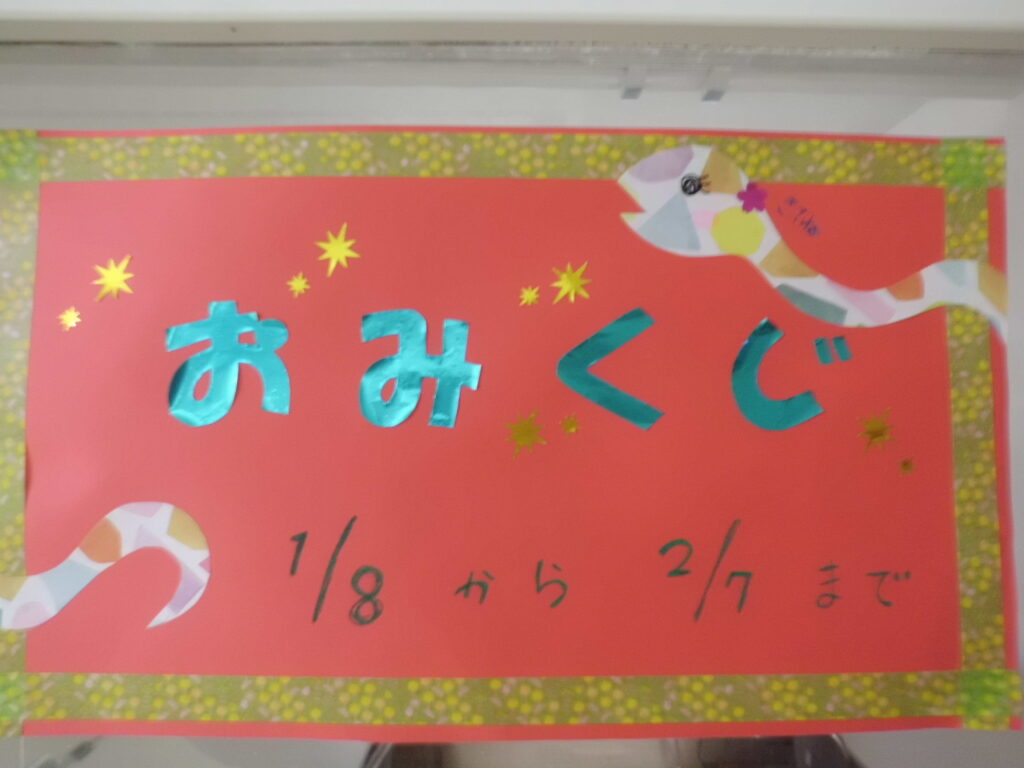 おみくじ
1/8 から 2/7 まで